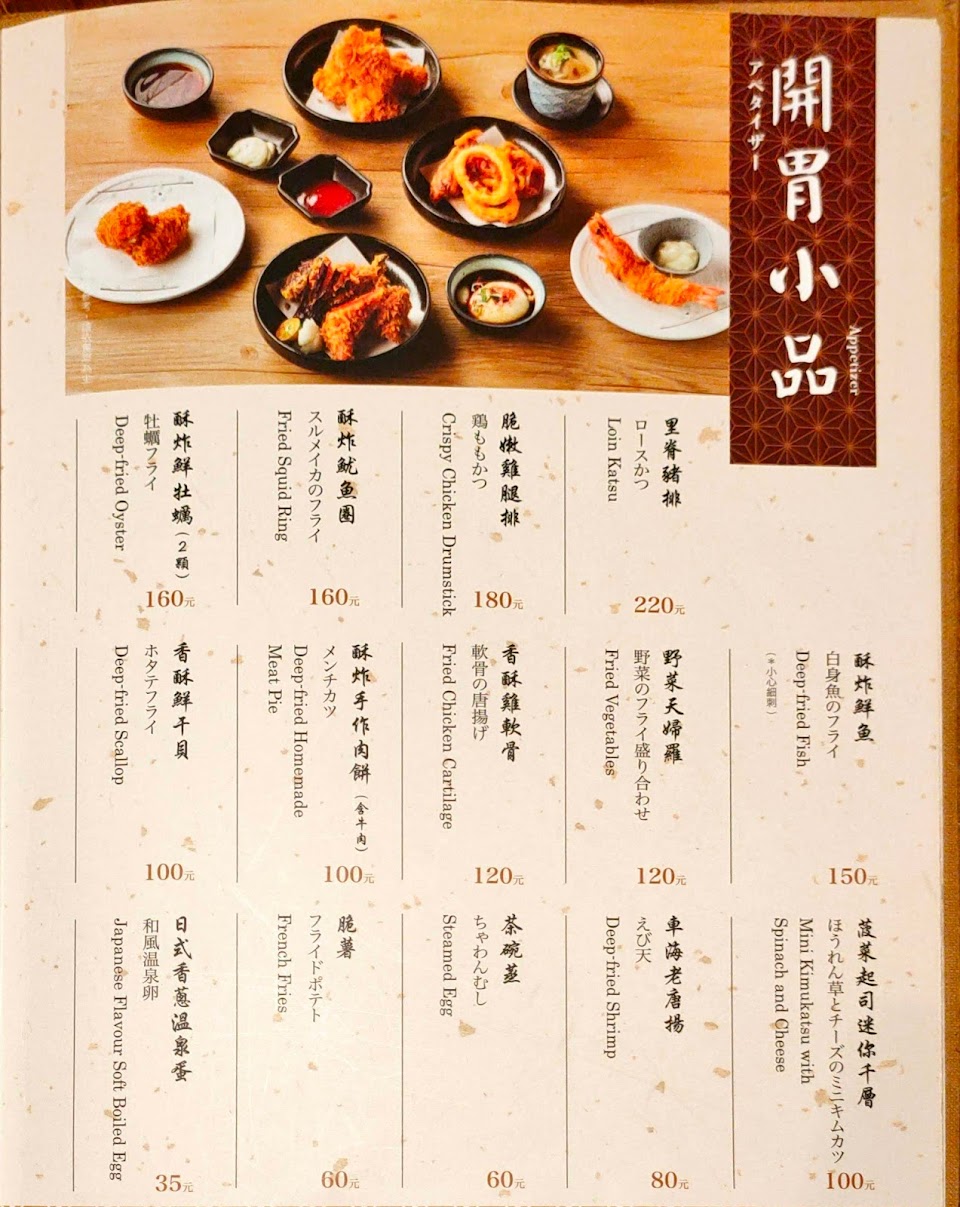 開胃小品
アペタイザー
Appetizer
里脊豬排
ロースかつ
Loin Katsu
220元
脆嫩雞腿排
鶏ももかつ
Crispy Chicken Drumstick
180元
酥炸魷魚圈
スルメイカのフライ
Fried Squid Ring
160元
酥炸鮮牡蠣(2顆)
牡蠣フライ
Deep-fried Oyster
160元
酥炸鮮魚
白身魚のフライ
Deep-fried Fish
(*小心細刺)
150元
野菜天婦羅
野菜のフライ盛り合わせ
Fried Vegetables
120元
香酥雞軟骨
軟骨の唐揚げ
Fried Chicken Cartilage
120元
酥炸手作肉餅(含牛肉)
メンチカツ
Deep-fried Homemade
Meat Pie
100元
香酥鮮干貝
ホタテフライ
Deep-fried Scallop
100元
菠菜起司迷你千層
ほうれん草とチーズのミニキムカツ
Mini Kimukatsu with
Spinach and Cheese
100元
車海老唐揚
えび天
Deep-fried Shrimp
80元
茶碗蒸
ちゃわんむし
Steamed Egg
60元
脆薯
フライドポテト
French Fries
60元
日式香蔥溫泉蛋
和風温泉卵
Japanese Flavour Soft Boiled Egg
35元